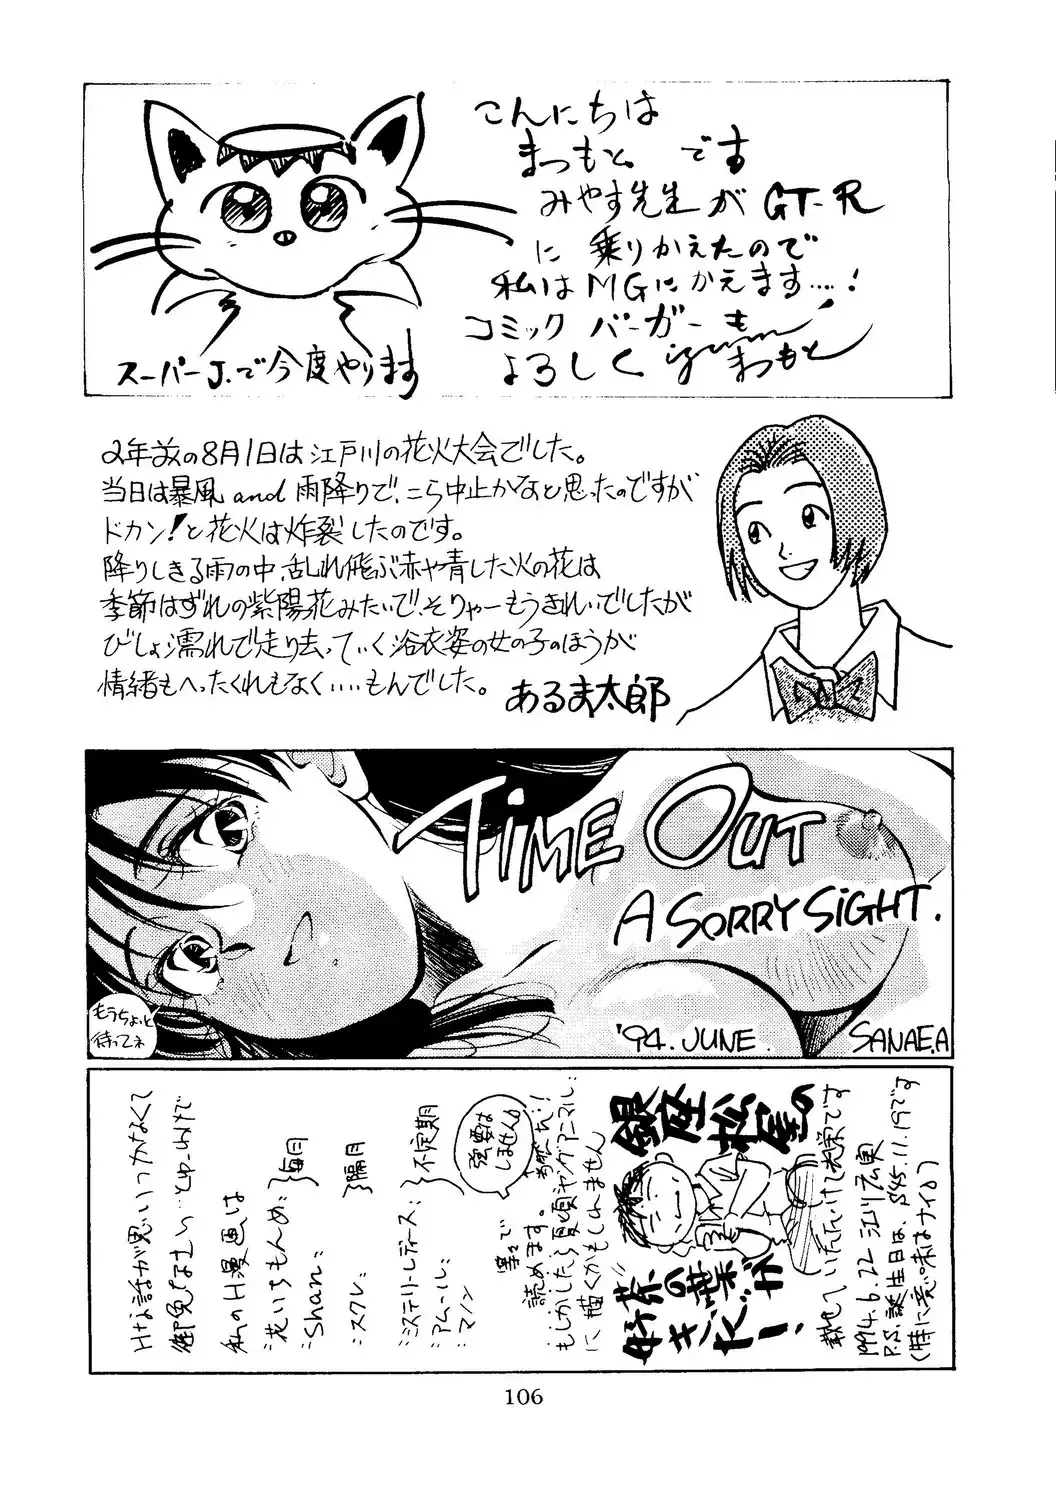 こんにちは
まつもと。です
みやす先生が GT-R
に 乗りかえたので
私は MGにかえます…!
コミック バーガーも
よろしく izumi まつもと
スーパーJ.で今度やります
2年前の8月1日は江戸川の花火大会でした。
当日は暴風 and 雨降りで、こら中止かなと思ったのですが
ドカン!と花火は炸裂したのです。
降りしきる雨の中、乱れ飛ぶ赤や青した火の花は
季節はずれの紫陽花みたいで、そりゃーもうきれいでしたが
びしょ濡れで走り去っていく浴衣姿の女の子のほうが
情緒もへったくれもなく‥‥もんでした。
あるま太郎
TIME OUT
A SORRY SIGHT.
もうちょっと
待ってネ
'94. JUNE.
SANAE.A
Hな話が思いつかなくて
御免なさい…とゆーわけで
私のH漫画は
花いちもんめ:
Shan:
}毎月
スクレ:
}隔月
ミステリトレディース:
アムール:
マノン
}不定期
強要は
しません。
等で
読めます。
もしかしたら夏頃ヤングアニマル:
に描くかもしれません
銀座
松屋の
お茶の葉
載せていただいて光栄です
1994.6.22 江川広実
P.S.誕生日は、S45.11.19です
(特に意味はナイよ)
106